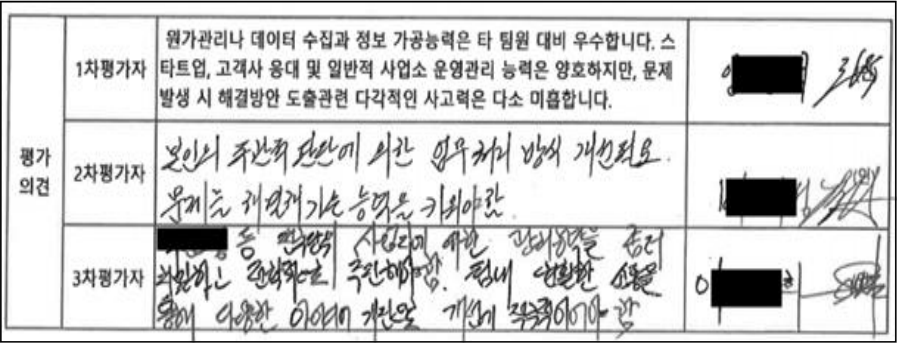 평가
의견
1차평가자
원가관리나 데이터 수집과 정보 가공능력은 타 팀원 대비 우수합니다. 스
타트업, 고객사 응대 및 일반적 사업소 운영관리 능력은 양호하지만, 문제
발생 시 해결방안 도출관련 다각적인 사고력은 다소 미흡합니다.
2차평가자
본인의 주관적 판단에 의한 업무처리 방식 개선필요.
문제를 해결해 가는 능력을 키워야함
3차평가자
등 사업장에 대한 관리
하고 추진해야 함. 팀내 원활한 소통을
통해 다양한 개선에 적극적이어야 함